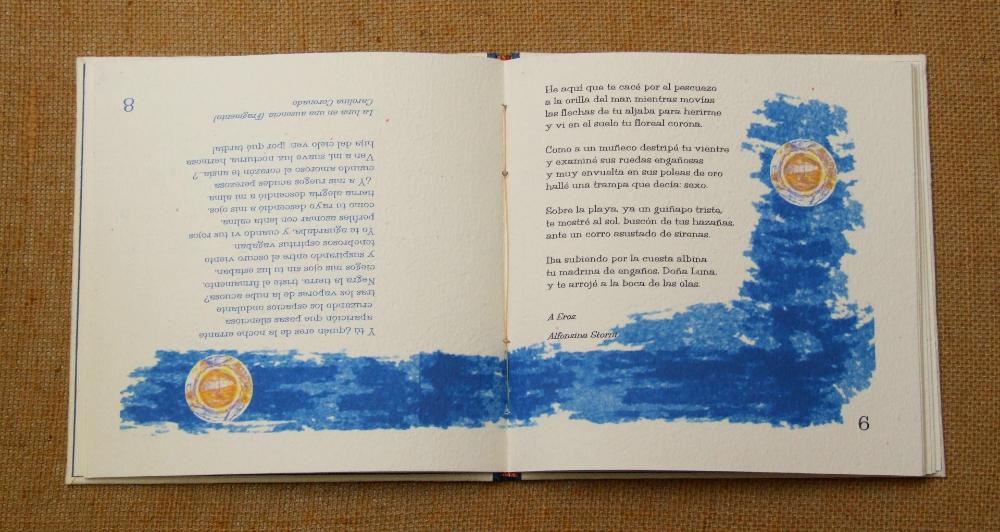 Y tú ¿quién eres de la noche errante
aparición que pasas silenciosa
cruzando los espacios ondulante
tras los vapores de la nube acuosa?
Negra la tierra, triste el firmamento,
ciegos mis ojos sin tu luz estaban,
y suspirando entre el oscuro viento
tenebrosos espíritus vagaban
Yo te aguardaba, y cuando vi tus rojos
perfiles asomar con lenta calma,
como tu rayo descendió a mis ojos,
tierna alegría descendió a mi alma.
¿Y a mis ruegos acudes perezosa
cuando amoroso el corazón te ansía..?
Ven a mí, suave luz, nocturna, hermosa
hija del cielo ven: ¡por qué tardía!
La luna en una ausencia (Fragmento)
Carolina Coronado
8
He aquí que te cacé por el pescuezo
a la orilla del mar, mientras movías
las flechas de tu aljaba para herirme
y vi en el suelo tu floreal corona.
Como a un muñeco destripé tu vientre
y examiné sus ruedas engañosas
y muy envuelta en sus poleas de oro
hallé una trampa que decía: sexo.
Sobre la playa, ya un guiñapo triste,
te mostré al sol, buscón de tus hazañas,
ante un corro asustado de sirenas.
Iba subiendo por la cuesta albina
tu madrina de engaños, Doña Luna,
y te arrojé a la boca de las olas.
A Eros
Alfonsina Storni
9